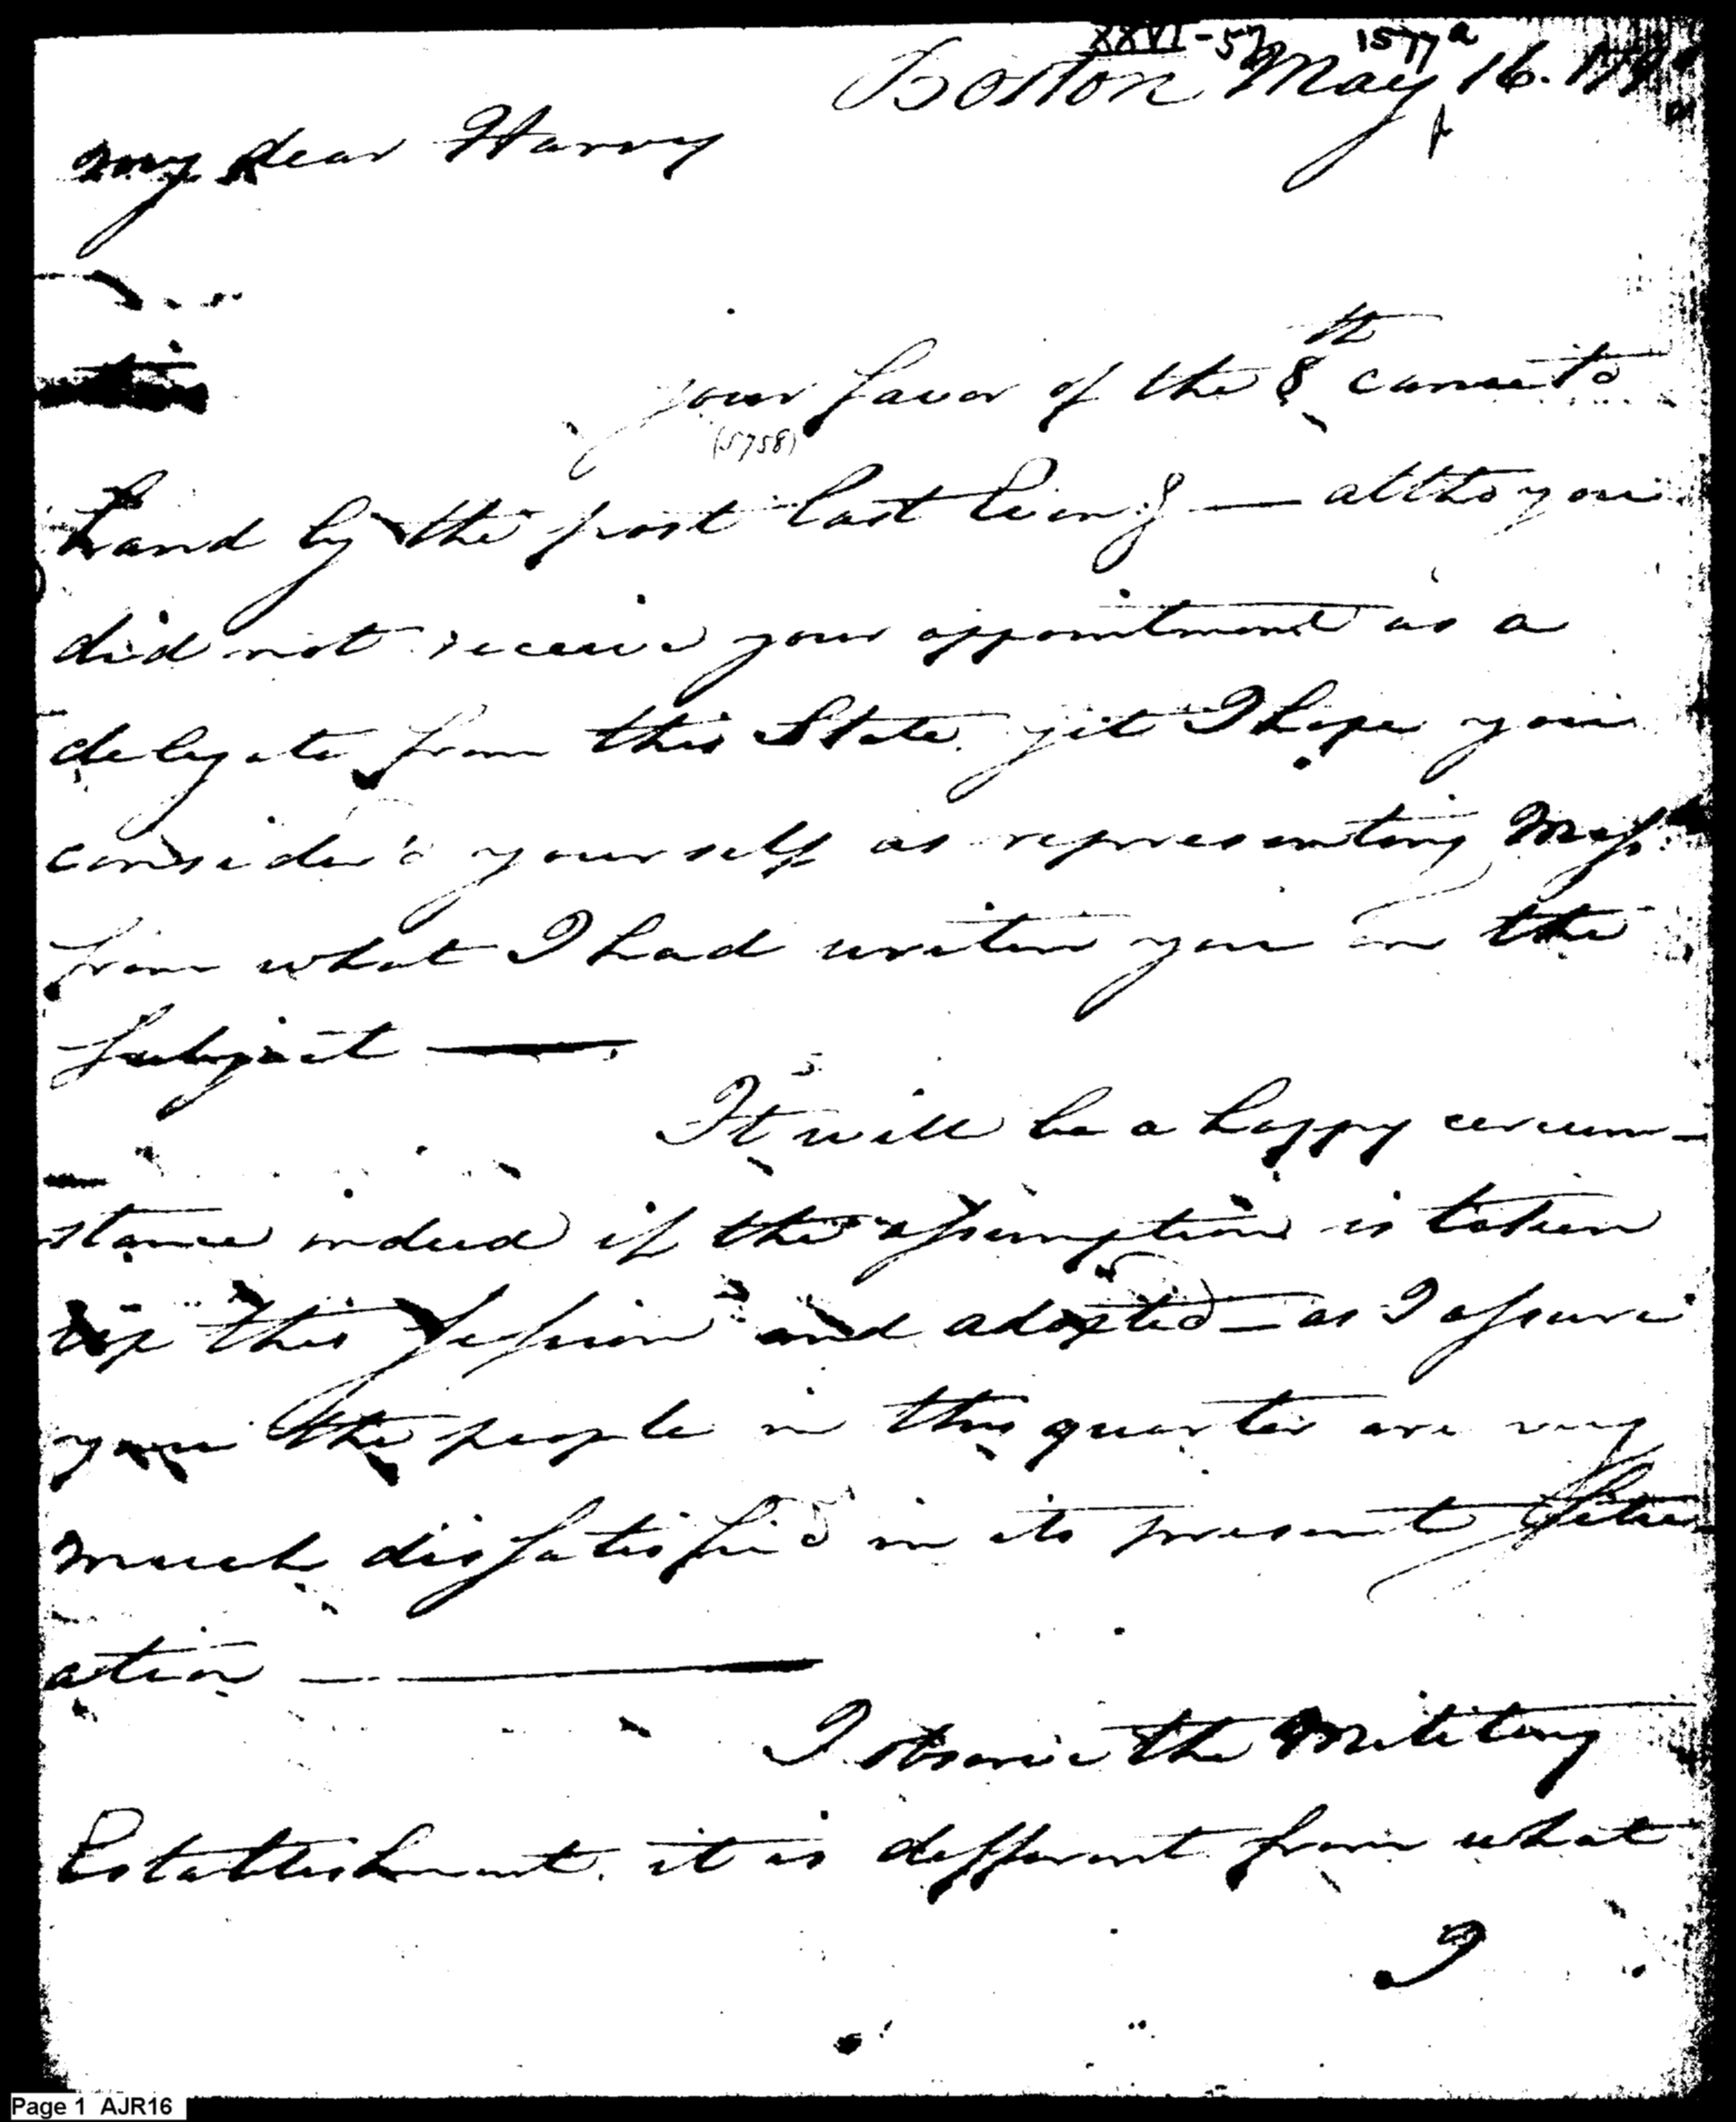 XXVI-57 1577a
Boston May 16. 179
my dear Harry
your favor of the 8th came to
(5758)
hand by the post last Even:g — altho you
did not receive your appointment as a
delegate from this State, yet I hope you
consider'd yourself as representing Mass
from what I had writen you on the
Subject —
It will be a happy circum-
stance indeed if the assumption is taken
up this Session and adopted — as I assure
you the people in this quarter are very
much dissatisfied in its present Situ-
ation —
I observe the Military
Establishment. it is different from what
I
Page 1 AJR16